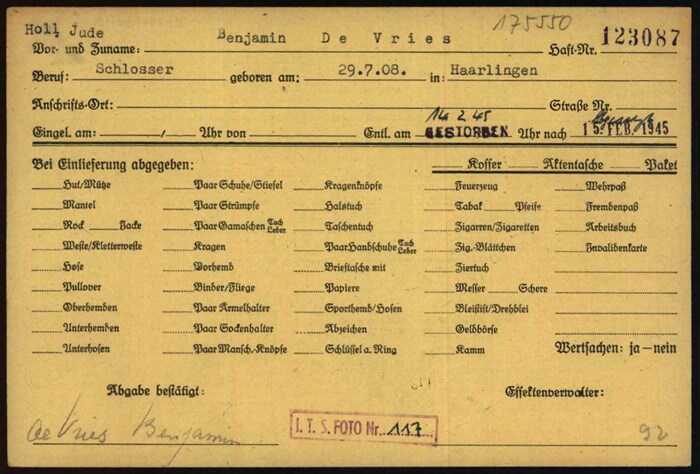 Holl. Jude
175550
Vor- und Zuname: Benjamin De Vries Haft-Nr. 123087
Beruf: Schlosser geboren am: 29.7.08. in: Haarlingen
Anschrifts-Ort: Straße Nr.
14 2 45
Eingel. am: Uhr von Entl. am GESTORBEN Uhr nach 15. FEB. 1945
Bei Einlieferung abgegeben: Koffer Aktentasche Paket
Hut/Mütze Paar Schuhe/Stiefel Kragenknöpfe Feuerzeug Wehrpaß
Mantel Paar Strümpfe Halstuch Tabak Pfeife Fremdenpaß
Rock Jacke Paar Gamaschen Tuch Leder Taschentuch Zigarren/Zigaretten Arbeitsbuch
Weste/Kletterweste Kragen Paar Handschuhe Tuch Leder Zig.-Blättchen Invalidenkarte
Hose Vorhemd Brieftasche mit Ziertuch
Pullover Binder/Fliege Papiere Messer Schere
Oberhemden Paar Ärmelhalter Sporthemd/Hosen Bleistift/Drehblei
Unterhemden Paar Sockenhalter Abzeichen Geldbörse
Unterhosen Paar Mansch.-Knöpfe Schlüssel a. Ring Kamm Wertsachen: ja—nein
Abgabe bestätigt: Effektenverwalter:
de Vries Benjamin
I. T. S. FOTO Nr. 117
92